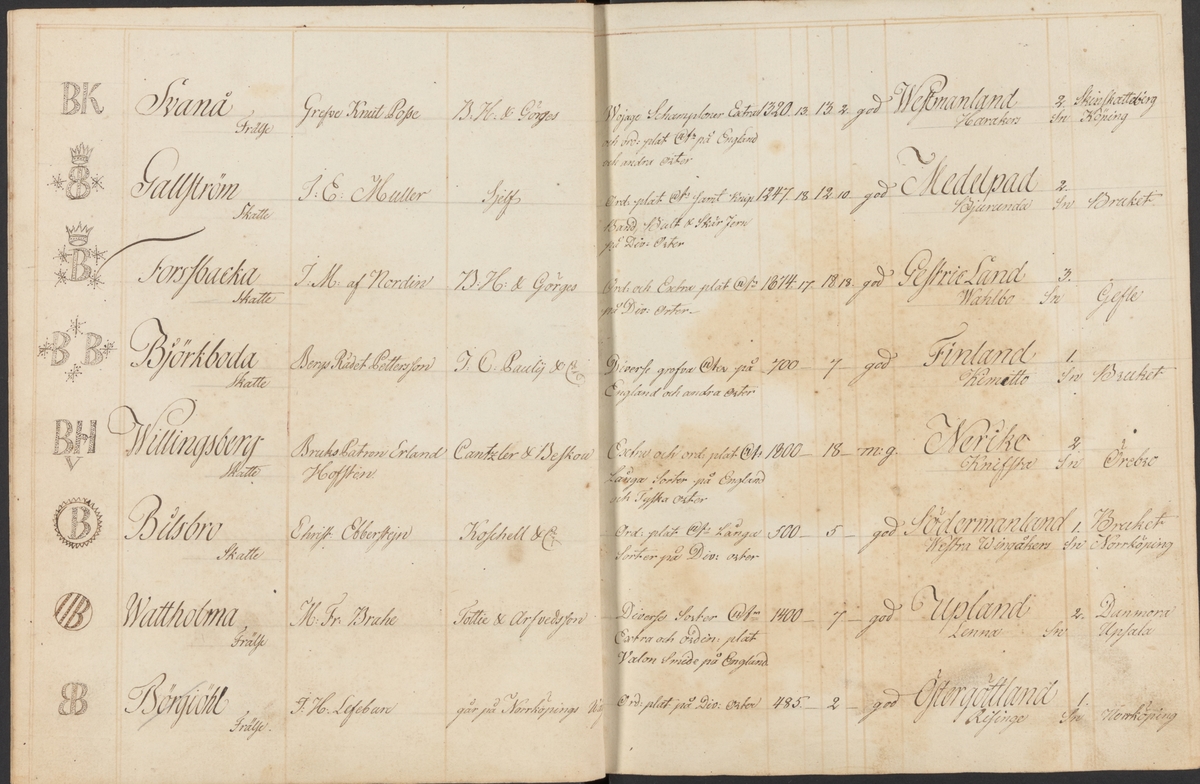 BK Svanå Grefve Knut Posse B. H. & Görges Wojage Schamploner Extra 1320 13. 13. 2. god Westmanland 2. Skinskatteberg
Frälse och ord: plat på England Harakers Sn Köping
och andra orter
B Gallström J. E. Muller Sjelf Ord. plat samt Knip 1247. 18. 12. 10. god Medelpad 2.
Skatte Band, Bult & Skär Jern Njurunda Sn Bruket
på Div: Orter
B Forssbacka J. M. af Nordin B. H: & Görges Ord: och Extra plat 1674. 17. 18. 18. god Gestric Land 3.
Skatte på Div: Orter Wahlbo Sn Gefle
B B Björkboda Bergs Rådet Pettersson J. C. Pauly & C Diverse grofva på 700 7 god Finland 1.
Skatte England och andra Orter Kimitto Sn Bruket
BH Willingsberg Bruks Patron Erland Cantzler & Beskow Extra och ord: plat 1800 18 m: g. Nerike 2.
Skatte Hofsten Långa Sorter på England Knifsta Sn Örebro
och Tyska orter
B Bålsbro Christ. Ebberstejn Koschell & C Ord: plat Långa 500 5 god Södermanland 1. Bruket
Skatte Sorter på Div: orter Westra Wingåkers Sn Norrköping
B Wattholma M. Fr. Brahe Tottie & Arfvedsson Diverse Sorter 1400 7 god Upland 2. Danmora
Frälse Extra och orden: plat Lenna Sn Upsala
Valon Smide på England
BB Börgsjöhl J. H. Lefebure går på Norrköpings Ord: plat på Div: Orter 485. 2 god Östergöttland 1.
Frälse. Risinge Sn Norrköping